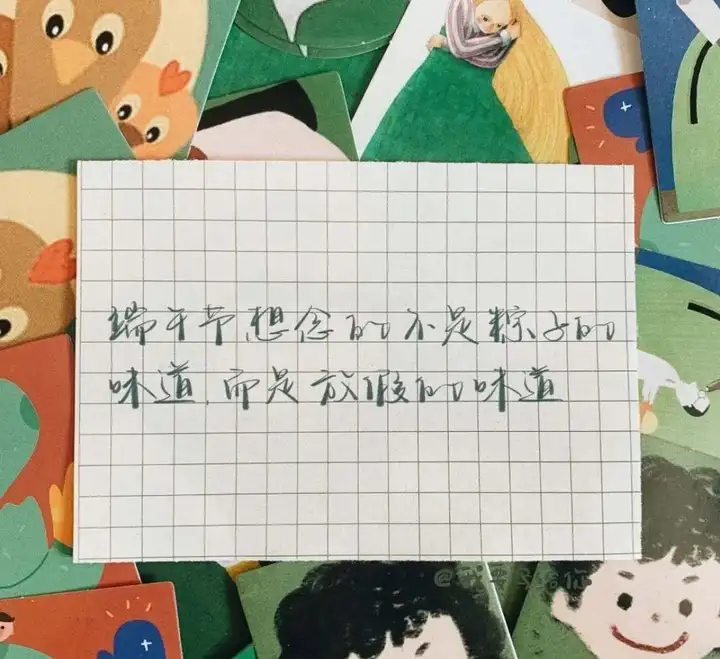 端午节想念的不是粽子的
味道,而是放假的味道